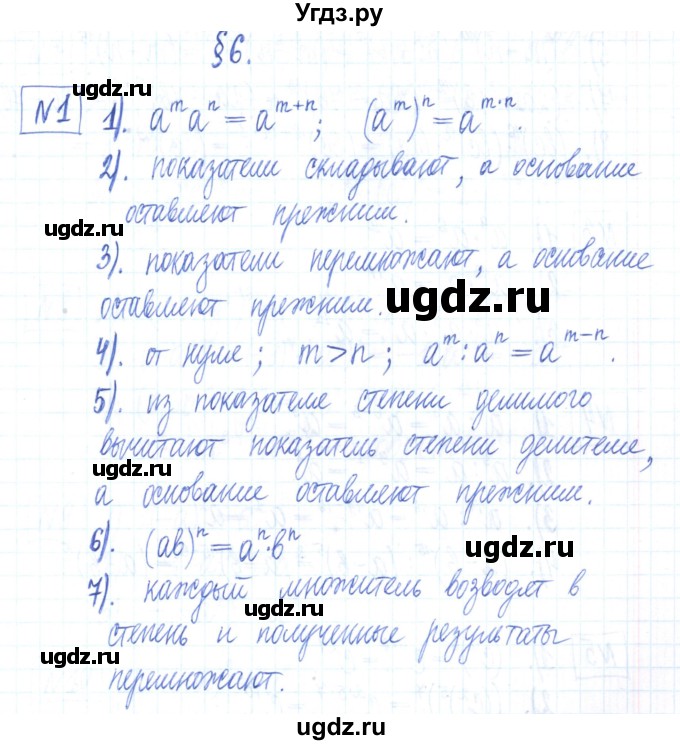 Угдз.ру
§6.
ugdz.ru
№1 1). aᵐaⁿ = aᵐ⁺ⁿ; (aᵐ)ⁿ = aᵐ·ⁿ.
ugdz.ru
2). показатели складывают, а основание
оставляют прежним.
ugdz.ru
3). показатели перемножают, а основание
оставляют прежним.
ugdz.ru
4). от нуля; m>n; aᵐ:aⁿ = aᵐ⁻ⁿ.
ugdz.ru
5). из показателя степени делимого
вычитают показатель степени делителя,
ugdz.ru
а основание оставляют прежним.
6). (ав)ⁿ = aⁿ·вⁿ
ugdz.ru
7). каждый множитель возводят в
ugdz.ru
степень и полученные результаты
ugdz.ru
перемножают.
ugdz.ru